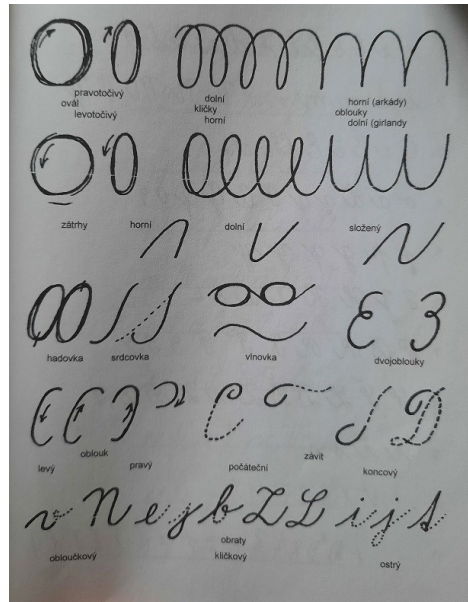 pravotočivý
ovál
levotočivý
dolní
kličky
horní
horní (arkády)
oblouky
dolní (girlandy
zátrhy horní dolní složený
hadovka srdcovka vlnovka dvojoblouky
oblouk
levý pravý
počáteční závit koncový
v N e y b Z L i j s
obraty
obloučkový kličkový ostrý